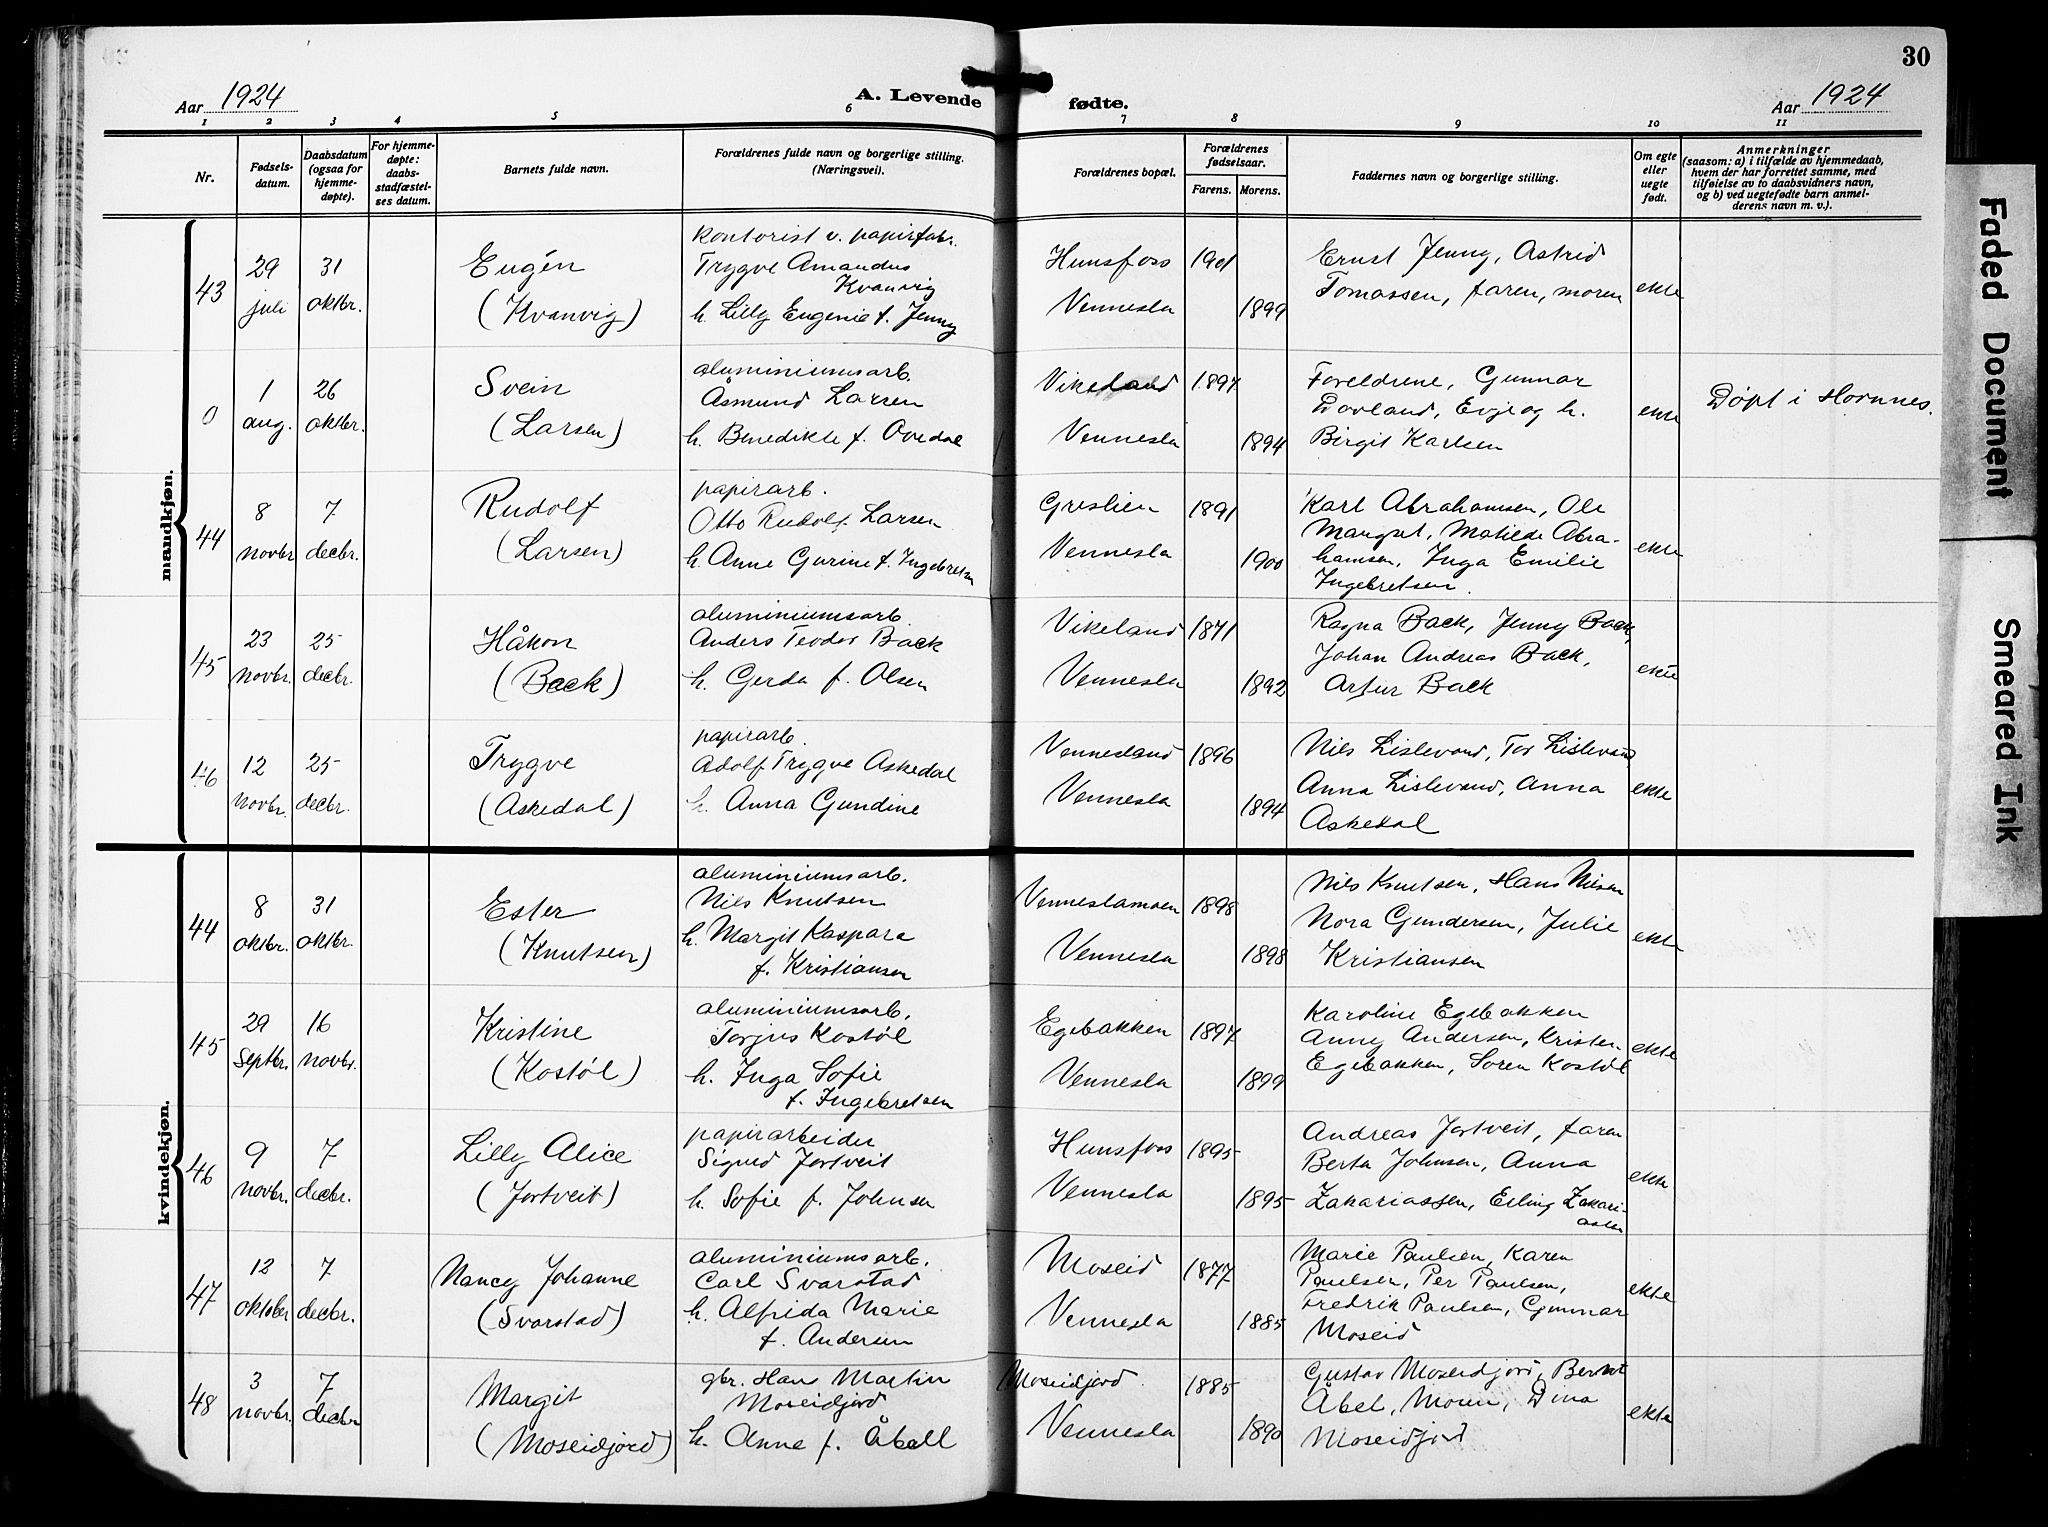 30
Aar 1924
A. Levende fødte.
Aar 1924
1 2 3 4 5 6 7 8 9 10 11
Nr.
Fødsels-
datum.
Daabsdatum
(ogsaa for
hjemme-
døpte).
For hjemme-
døpte:
daabs-
stadfæstel-
ses datum.
Barnets fulde navn.
Forældrenes fulde navn og borgerlige stilling.
(Næringsvei).
Forældrenes bopæl.
Forældrenes
fødselsaar.
Farens. Morens.
Faddernes navn og borgerlige stilling.
Om egte
eller
uegte
født.
Anmerkninger
(saasom: a) i tilfælde av hjemmedaab,
hvem der har forrettet samme, med
tilføielse av to daabsvidners navn,
og b) ved uegtefødte barn anmel-
derens navn m. v.).
mandkjøn.
43
29
juli
31
oktbr.
Eugén
(Kvanvig)
Kontorist v. papirfabr.
Trygve Amandus
Kvanvig
h. Lilly Eugenie f. Jenny
Hunsfoss
Vennesla
1901
1899
Ernst Jenny, Astrid
Tomassen, faren, moren
ekte
0
1
aug.
26
oktbr.
Svein
(Larsen)
aluminiumsarb.
Åsmund Larsen
h. Benedikte f. Ovedal
Vikeland
Vennesla
1897
1894
Foreldrene, Gunnar
Dovland, Evje og h.
Birgit Karlsen
ekte
Døpt i Hornnes.
44
8
novbr
7
decbr.
Rudolf
(Larsen)
papirarb.
Otto Rudolf Larsen
h. Anne Gurine f. Ingebretsn
Greslien
Vennesla
1891
1900
Karl Abrahamsen, Ole
Margut, Matilde Abra-
hamsen, Inga Emilie
Ingebretsen.
ekte
45
23
novbr.
25
decbr.
Håkon
(Back)
aluminiumsarb.
Anders Teodor Back
h. Gerda f. Olsen
Vikeland
Vennesla
1871
1892
Ragna Back, Jenny Back,
Johan Andreas Back,
Artur Back
ekte
46
12
novbr.
25
decbr.
Trygve
(Askedal)
papirarb.
Adolf Trygve Askedal
h. Anna Gundine
Vennesland
Vennesla
1896
1894
Nils Lislevand, Tor Lislevand
Anna Lislevand, Anna
Askedal
ekte
kvindekjøn.
44
8
oktbr.
31
oktbr.
Ester
(Knutsen)
aluminiumsarb.
Nils Knutsen
h. Margit Kaspara
f. Kristiansen
Venneslamoen
Vennesla
1898
1898
Nils Knutsen, Hans Nilsen
Nora Gundersen, Julie
Kristiansen
ekte
45
29
Septbr.
16
novbr.
Kristine
(Kostøl)
aluminiumsarb.
Torjus Kostøl
h. Inga Sofie
f. Ingebretsen
Egebakken
Vennesla
1897
1899
Karoline Egebakken
Anny Andersen, Kristen
Egebakken, Søren Kostøl
ekte
46
9
novbr.
7
decbr.
Lilly Alice
(Jortveit)
papirarbeider
Sigurd Jortveit
h. Sofie f. Johnsen
Hunsfoss
Vennesla
1895
1895
Andreas Jortveit, faren
Berta Johnsen, Anna
Zakariassen, Erling Zakari-
assen
ekte
47
12
oktober
7
decbr.
Nancy Johanne
(Svarstad)
aluminiumsarb.
Carl Svarstad
h. Alfrida Marie
f. Andersen
Moseid
Vennesla
1877
1885
Marie Paulsen, Karen
Paulsen, Per Paulsen,
Fredrik Paulsen, Gunnar
Moseid
ekte
48
3
novbr.
7
decbr
Margit
(Moseidjord)
gbr. Hans Martin
Moseidjord
h. Anne f. Åbell
Moseidjord
Vennesla
1885
1890
Gustav Moseidjord, Berntt
Åbel, Moren, Dina
Moseidjord
ekte
Faded Document
Smeared Ink